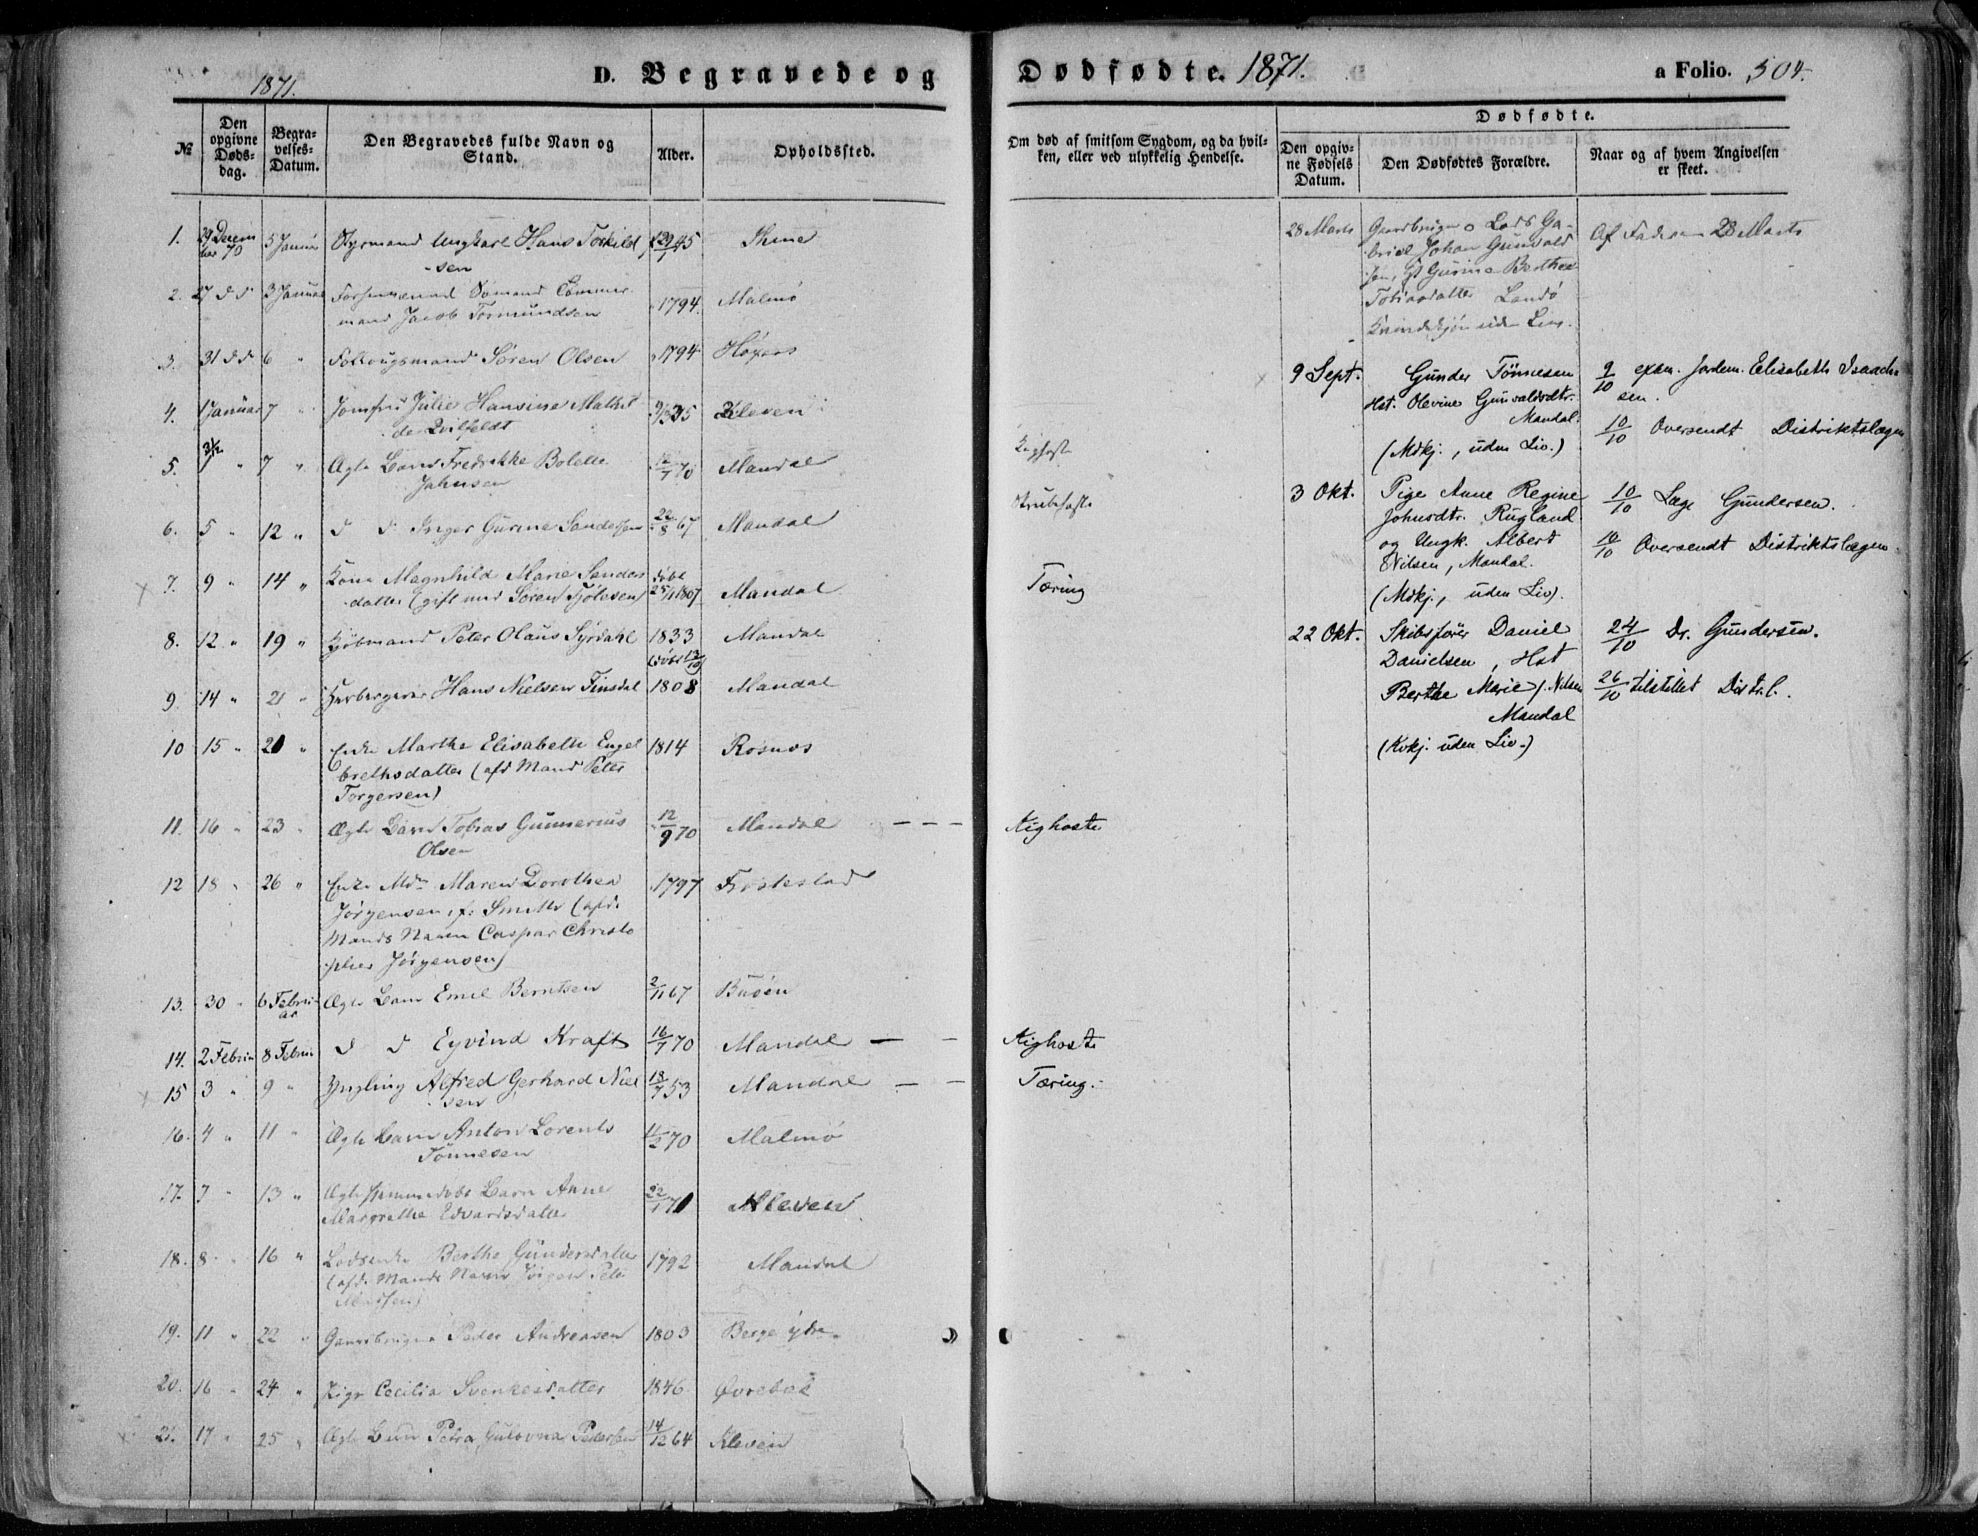 1871.
D. Begravede og
Dødfødte. 1871.
a Folio. 504.
№
Den opgivne Døds-dag.
Begra-velses-Datum.
Den Begravedes fulde Navn og Stand.
Alder.
Opholdssted.
Om død af smitsom Sygdom, og da hvil-
ken, eller ved ulykkelig Hendelse.
Dødfødte.
Den opgiv-ne Fødsels Datum.
Den Dødfødtes Forældre.
Naar og af hvem Angivelsen er skeet.
1. 29 Decem 5 Januar Styrmand Ungkarl Hans Torkild 45
ber 70 sen
2. 27 d d 3 Januar Sømand
mand Jacob Tormundsen 1794. Malmø
3. 31 d d 6 " Søren Olsen 1794
4. 1 Januar 7 " Jomfru Julie Hansine Mathil Kleven
de Qvilfeldt
5. 7 " Ægte Barn Fredrikke Bolette 70 Mandal
Jahnsen
6. 5 " 12 " d d Inger Gurine Sandersen 22/8 67 Mandal Strubehoste
7. 9 " 14 " Kone Magnhild Marie Sanders døbt
datter (gift med Søren Fjølesen) 1807 Mandal Tæring
8. 12 " 19 " Kjøbmand Peter Olaus Syrdahl 1833 Mandal
(døbt 13/10)
9 14 " 21 " Hans Nielsen Finsdal 1808 Mandal
10 15 " 21 " Enke Marthe Elisabeth Engel 1814 Rosnes
brethsdatter (afd Mand Peter
Torgersen)
11. 16 " 23 " Ægte Barn Tobias Gunnerius 12/9 70 Mandal – – – Kighoste
Olsen
12 18 " 26 " Enke Mdm Maren Dorothea 1797 Frøstestad
Jørgensen f. Smith (afd.
Mands Navn Caspar Christo
pher Jørgensen)
13. 30 " 6 Febru Ægte Barn Emil Berntsen 2/11 67 Buøen
ar
14. 2 Februar 8 Februar d d Eyvind Kraft 16/7 70 Mandal – – Kighoste
15 3 " 9 " Yngling Alfred Gerhard Niel 18/7 53 Mandal – – Tæring.
sen
16. 4 " 11 " Ægte Barn Anton Lorents 70 Malmø
Tønnesen
17. 7 " 13 " Ægte hjemmedøbt Barn Anne 22/1 71 Kleven
Margrethe Edvardsdatter
18. 8 " 16 " Lodsenke Berthe Gundersdatter 1792 Mandal
(afd. Mands Navn Jørgen Peter
19. 11 " 22 " Gaardbruger Peder Andreasen 1803 Berge ydre
20. 16 " 24 " Pige Cecilia Svenkesdatter 1846 Øvrebø
21. 17 " 25 " Ægte Barn Petra Gulovna Pedersen 14/12 64 Kleven
28 Marts Gaardbruger o Lods Ga-
briel Johan Gunvald
sen, Gurine Berthea
Tobiasdatter Landø
Kvindekjøn uden Liv.
Af Faderen 28 Marts
9 Sept. Gunder Tönnesen
Hst. Olevine Gunvaldsdtr.
Mandal.
(Mdkj., uden Liv.)
9/10 exam. Jordem. Elisabeth Isaach-
sen.
10/10 Oversendt Distriktslægen
3 Okt. Pige Anne Regine
Johnsdtr. Rugland
og Ungk. Albert
Nilsen, Mandal.
(Mdkj., uden Liv).
10/10 Læge Gundersen.
10/10 Oversendt Distriktslægen.
22 Okt. Skibsfører Daniel
Danielsen, Hst
Berthe Marie f. Nilsen
Mandal
(Kvkj. uden Liv.)
24/10 Dr. Gundersen.
26/10 tilstillet Distr.l.